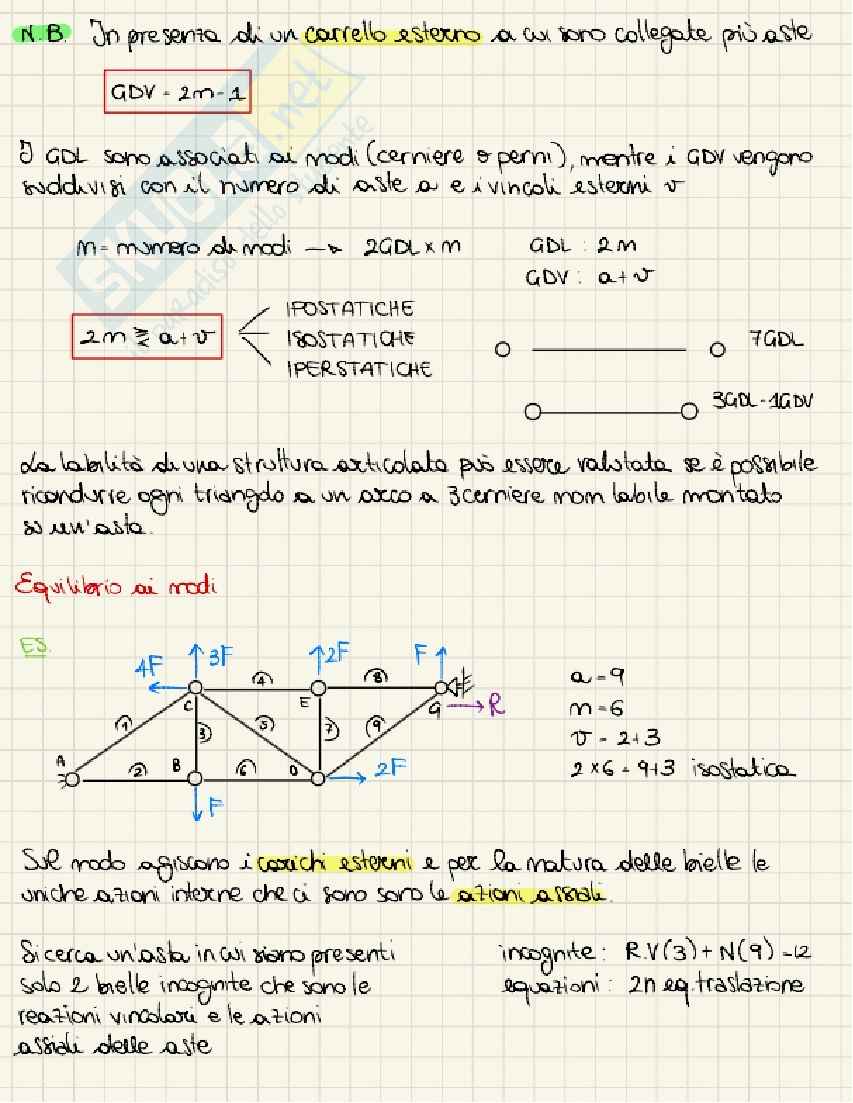 N.B. In presenza di un carrello esterno a cui sono collegate più aste
GDV = 2n-1
I GDL sono associati ai nodi (cerniere o perni), mentre i GDV vengono
suddivisi con il numero di aste a e i vincoli esterni v
n = numero di nodi → 2GDL x n
GDL : 2n
GDV : a+v
2n ⋛ a+v
IPOSTATICHE
ISOSTATICHE
IPERSTATICHE
7GDL
3GDL-1GDV
La labilità di una struttura articolata può essere valutata se è possibile
ricondurre ogni triangolo a un arco a 3 cerniere non labile montato
su un'asta.
Equilibrio ai nodi
ES.
4F 3F 2F F
C 4 E 8 G R
1 3 5 7 9
A 2 B 6 D 2F
F
a = 9
n = 6
v = 2+3
2x6 = 9+3 isostatica
Sul nodo agiscono i carichi esterni e per la natura delle bielle le
uniche azioni interne che ci sono sono le azioni assiali.
Si cerca un'asta in cui siano presenti
solo 2 bielle incognite che sono le
reazioni vincolari e le azioni
assiali delle aste
incognite : R.V(3) + N(9) = 12
equazioni : 2n eq. traslazione
SKUOLA.net
il paradiso dello studente